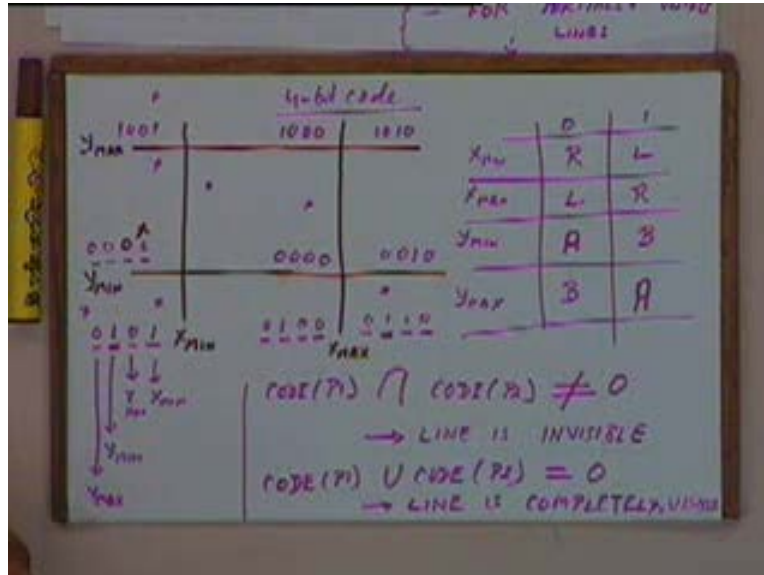 - FOR PARTIALLY
LINES
4-bit code
1001 1000 1010
YMAX
0001 0000 0010
YMIN
0101 XMIN 0100 XMAX 0110
XMAX XMIN
YMIN
YMAX
0 1
XMIN R L
XMAX L R
YMIN A B
YMAX B A
CODE(P1) ∩ CODE(P2) ≠ 0
→ LINE IS INVISIBLE
CODE(P1) ∪ CODE(P2) = 0
→ LINE IS COMPLETELY